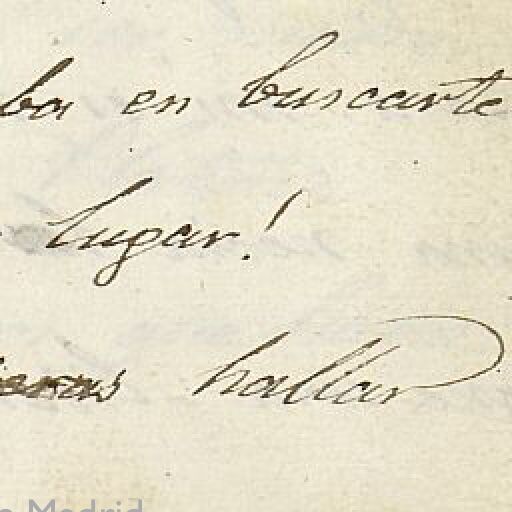 ba en buscarte
lugar!
eras hallar
Madrid